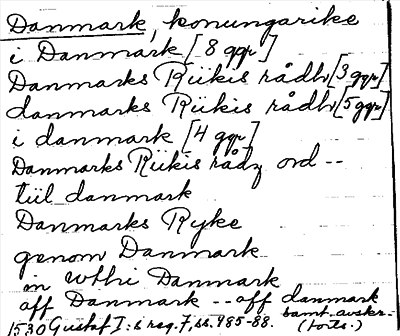 Danmark, konungarike
i Danmark [8 ggr]
Danmarks Rükis rådh [3 ggr]
danmarks Rükis rådh [5 ggr]
i danmark [4 ggr]
Danmarks Rükis rådz ord --
tüil danmark
Danmarks Ryke
genom Danmark
in wthi Danmark
aff Danmark -- aff danmark
1530 Gustaf I:s reg. 7, ss. 485-88. samt. avskr. (forts.)